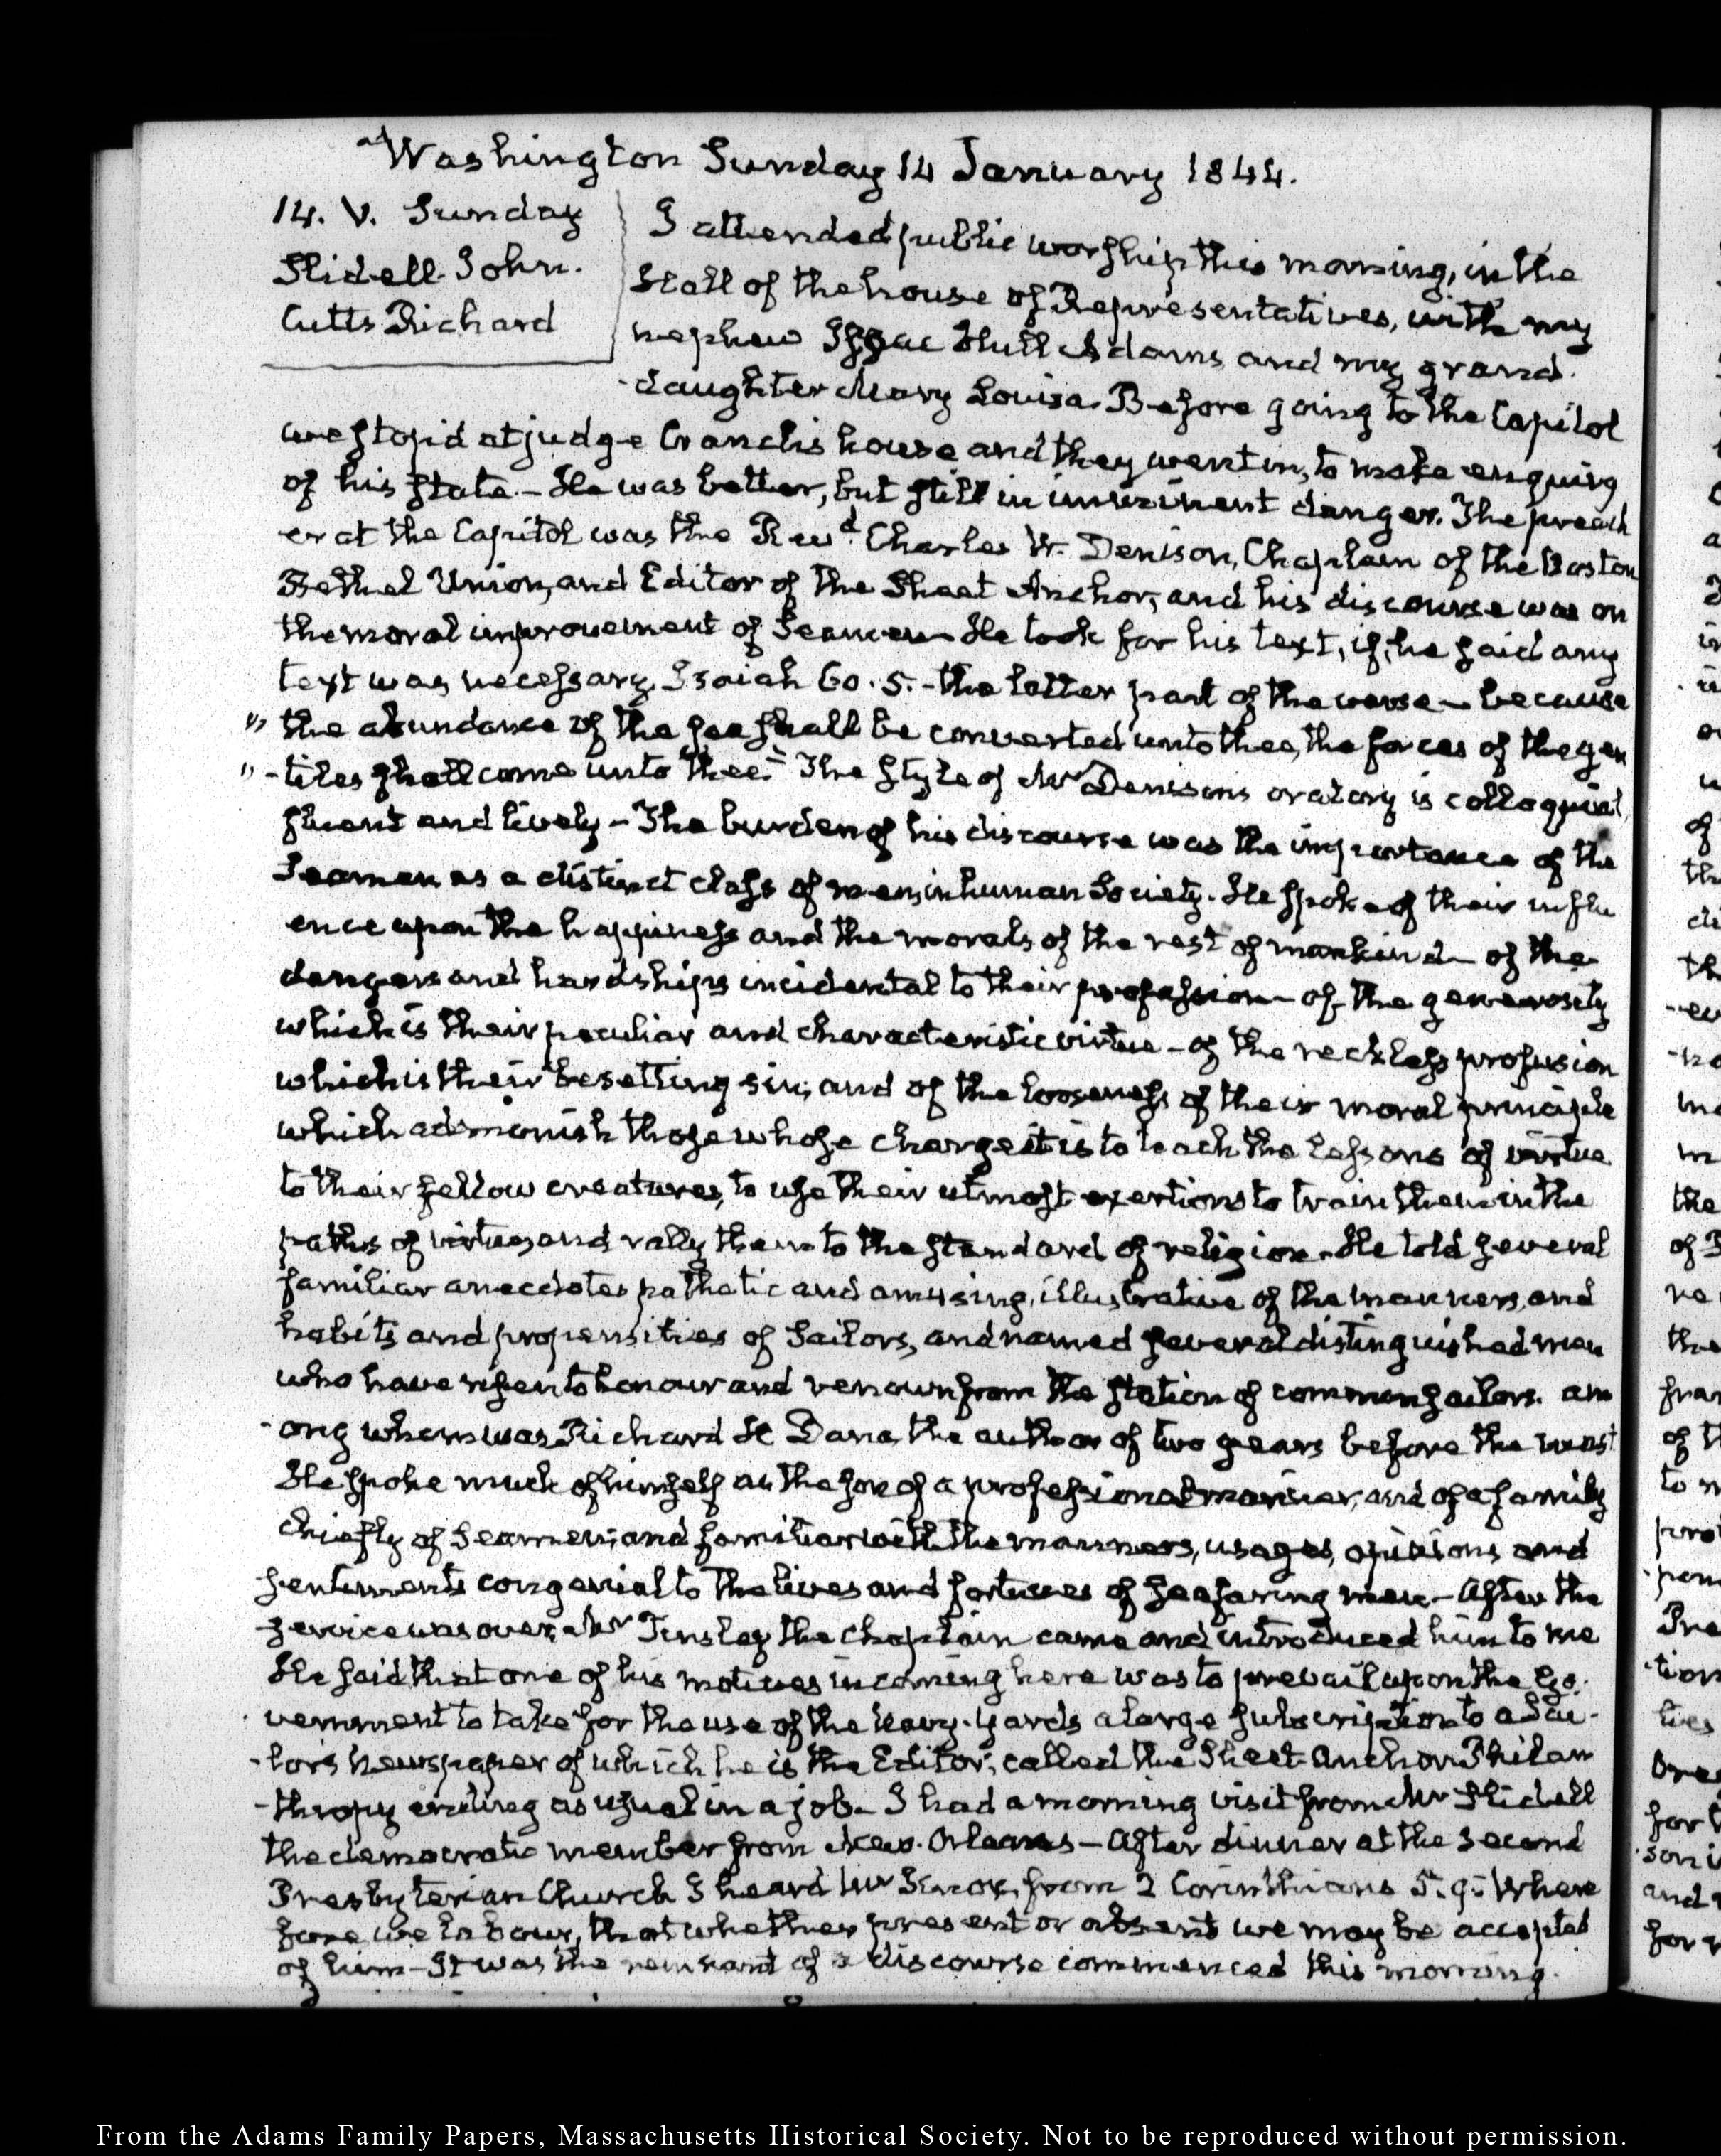 Washington Sunday 14 January 1844.
14. V. Sunday
Slidell John.
Cutts Richard
I attended public worship this morning, in the
Hall of the house of Representatives, with my
nephew Isaac Hull Adams, and my grand
-daughter Mary Louisa. Before going to the Capitol
we stop'd at judge Cranch's house and they went in, to make enquiry
of his state. — He was better, but still in imminent danger. The preach
er at the Capitol was the Revd. Charles W. Denison, Chaplain of the Boston
Bethel Union, and Editor of the Sheet Anchor, and his discourse was on
the moral improvement of Seamen — He took for his text, if, he said any
text was necessary, Isaiah 60. 5. - the latter part of the verse — because
" the abundance of the sea shall be converted unto thee, the forces of the gen
" -tiles shall come unto thee." The style of Mr Denison's oratory is colloquial,
fluent and lively — The burden of his discourse was the importance of the
Seamen as a distinct class of men, in human Society. He spoke of their influ
ence upon the happiness and the morals of the rest of mankind — of the
dangers and hardships incidental to their profession — of the generosity
which is their peculiar and characteristic virtue — of the reckless profusion
which is their besetting sin, and of the looseness of their moral principle
which admonish those whose charge it is to teach the lessons of virtue
to their fellow creatures, to use their utmost exertions to train them in the
paths of virtue, and rally them to the standard of religion. He told several
familiar anecdotes pathetic and amusing, illustrative of the manners, and
habits and propensities of Sailors, and named several distinguished men
who have risen to honour and renown from the station of common sailors. am
-ong whom was Richard H Dana, the author of two years before the mast
He spoke much of himself as the son of a professional mariner, and of a family
chiefly of Seamen; and familiar with the manners, usages, opinions and
sentiments congenial to the lives and fortunes of seafaring men — After the
service was over, Mr Tinsley the Chaplain came and introduced him to me
He said that one of his motives in coming here was to prevail upon the Go-
vernment to take for the use of the Navy-Yards a large subscription to a Sai-
-lor's newspaper of which he is the Editor, called the Sheet-Anchor. Philan
-thropy ending as usual in a job — I had a morning visit from Mr Slidell
the democratic member from New-Orleans — After dinner at the second
Presbyterian Church I heard Mr Knox, from 2 Corinthians 5. 9: Where
fore we labour, that whether present or absent we may be accepted
of him — It was the remnant of a discourse commenced this morning.
From the Adams Family Papers, Massachusetts Historical Society. Not to be reproduced without permission.